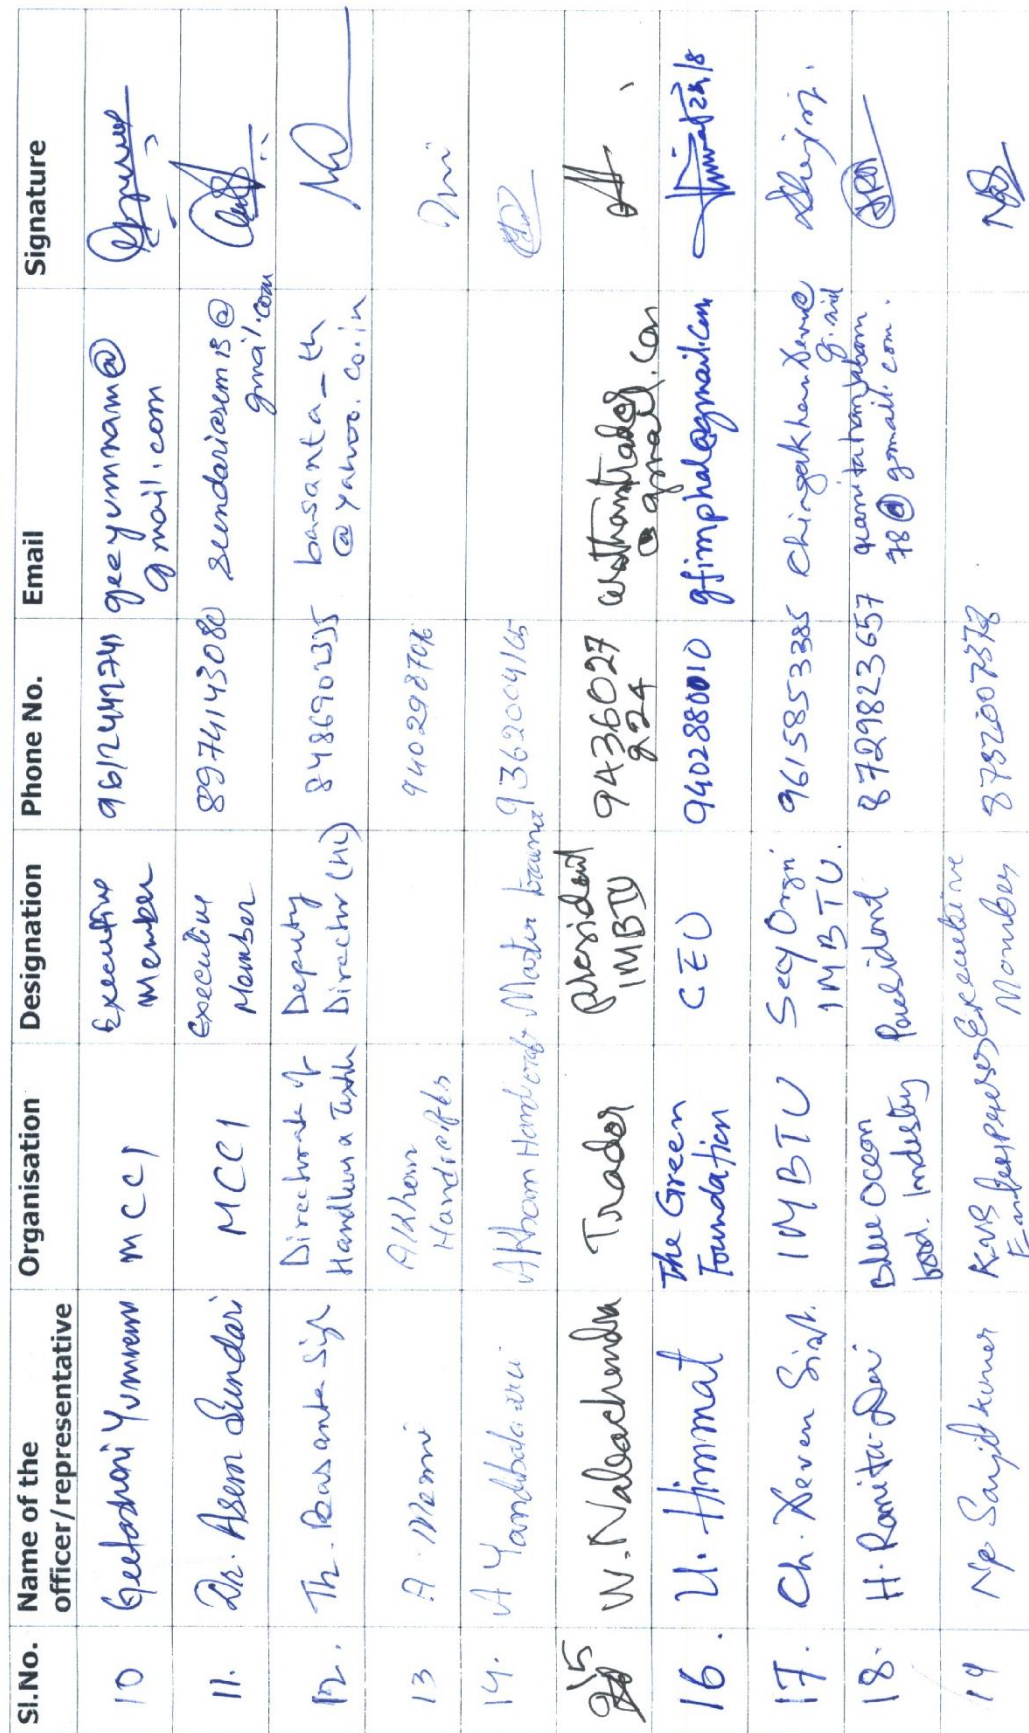 Sl.No. Name of the officer/representative Organisation Designation Phone No. Email Signature
10 Geetashori Yumnam MCCI Executive Member 9612442741 geeyumnam@gmail.com
11. Dr. Asem Sundari MCCI Executive Member 8974143080 sundariasem13@gmail.com
12. Th. Basanta Sigh Directorate of Handlum & Textile Deputy Director (HL) basanta_th@yahoo.co.in
13 A. Memi AKhom Handicrafts
14. A Yandibala AKhom Handicraft Master 9362004165
15 W. Nabachendra Trader President IMBTU 9436027224 @gmail.com
16. U. Himmat The Green Foundation CEO 9402880010 gfimphal@gmail.com
17. Ch. Deven IMBTU Secy Orgn IMBTU. 9615853385
18. H. Ranita Devi Blue Ocean Food. Industry President 8729823657 78@gmail.com.
19 Ng Sanjitkumer KNB Executive Member